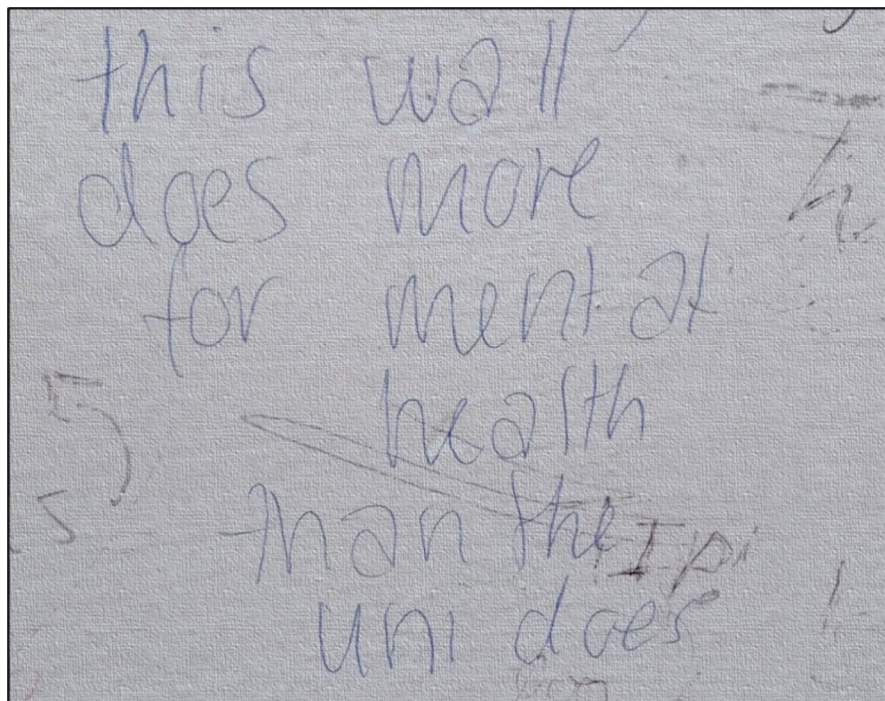 this wall
does more
for mental
health
than the
uni does